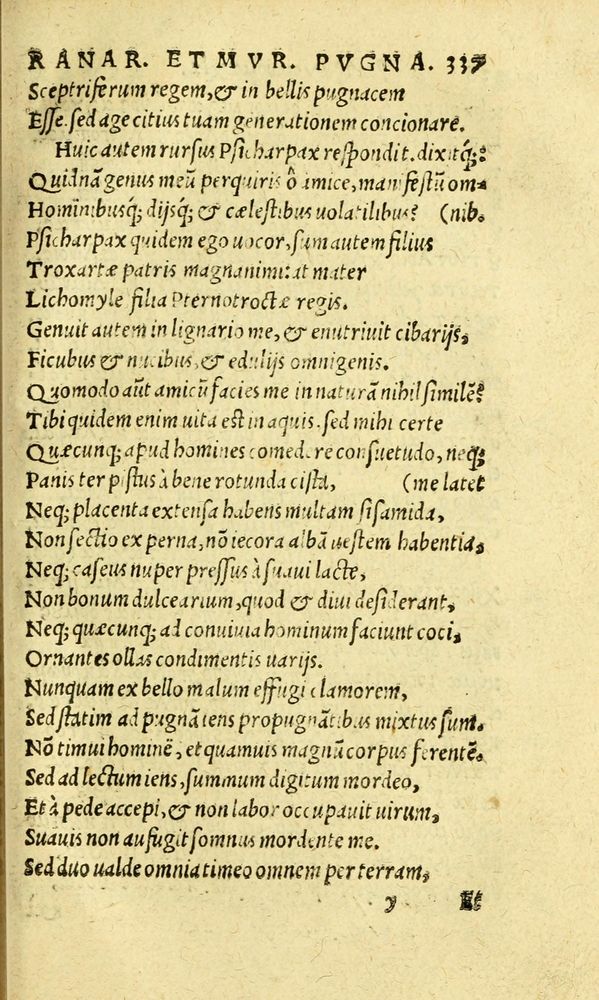 RANAR. ET MVR. PVGNA. 337
Sceptriferum regem, & in bellis pugnacem
Esse. sed age citius tuam generationem concionare.
Huic autem rursus Psicharpax respondit. dixitq;:
Quidnã genus meũ perquiris ô amice, manifestũ om-
Hominibusq; dijsq; & cælestibus uolatilibus? (nib.
Psicharpax quidem ego uocor, sum autem filius
Troxartæ patris magnanimi: at mater
Lichomyle filia Pternotroctæ regis.
Genuit autem in lignario me, & enutriuit cibarijs,
Ficubus & nucibus, & edulijs omnigenis.
Quomodo aũt amicũ facies me in naturã nihil similẽ?
Tibi quidem enim uita est in aquis. sed mihi certe
Quæcunq; apud homines comedere consuetudo, neq;
Panis ter pistus à bene rotunda cista, (me latet
Neq; placenta extensa habens multam sisamida,
Non sectio ex perna, nõ iecora albã uestem habentia,
Neq; caseus nuper pressus à suaui lacte,
Non bonum dulcearium, quod & diui desiderant,
Neq; quæcunq; ad conuiuia hominum faciunt coci,
Ornantes ollas condimentis uarijs.
Nunquam ex bello malum effugi clamorem,
Sed statim ad pugnã iens propugnãtibus mixtus sum.
Nõ timui hominẽ, et quamuis magnũ corpus ferentẽ.
Sed ad lectum iens, summum digitum mordeo,
Et à pede accepi, & non labor occupauit uirum,
Suauis non aufugit somnus mordente me.
Sed duo ualde omnia timeo omnem per terram,
y